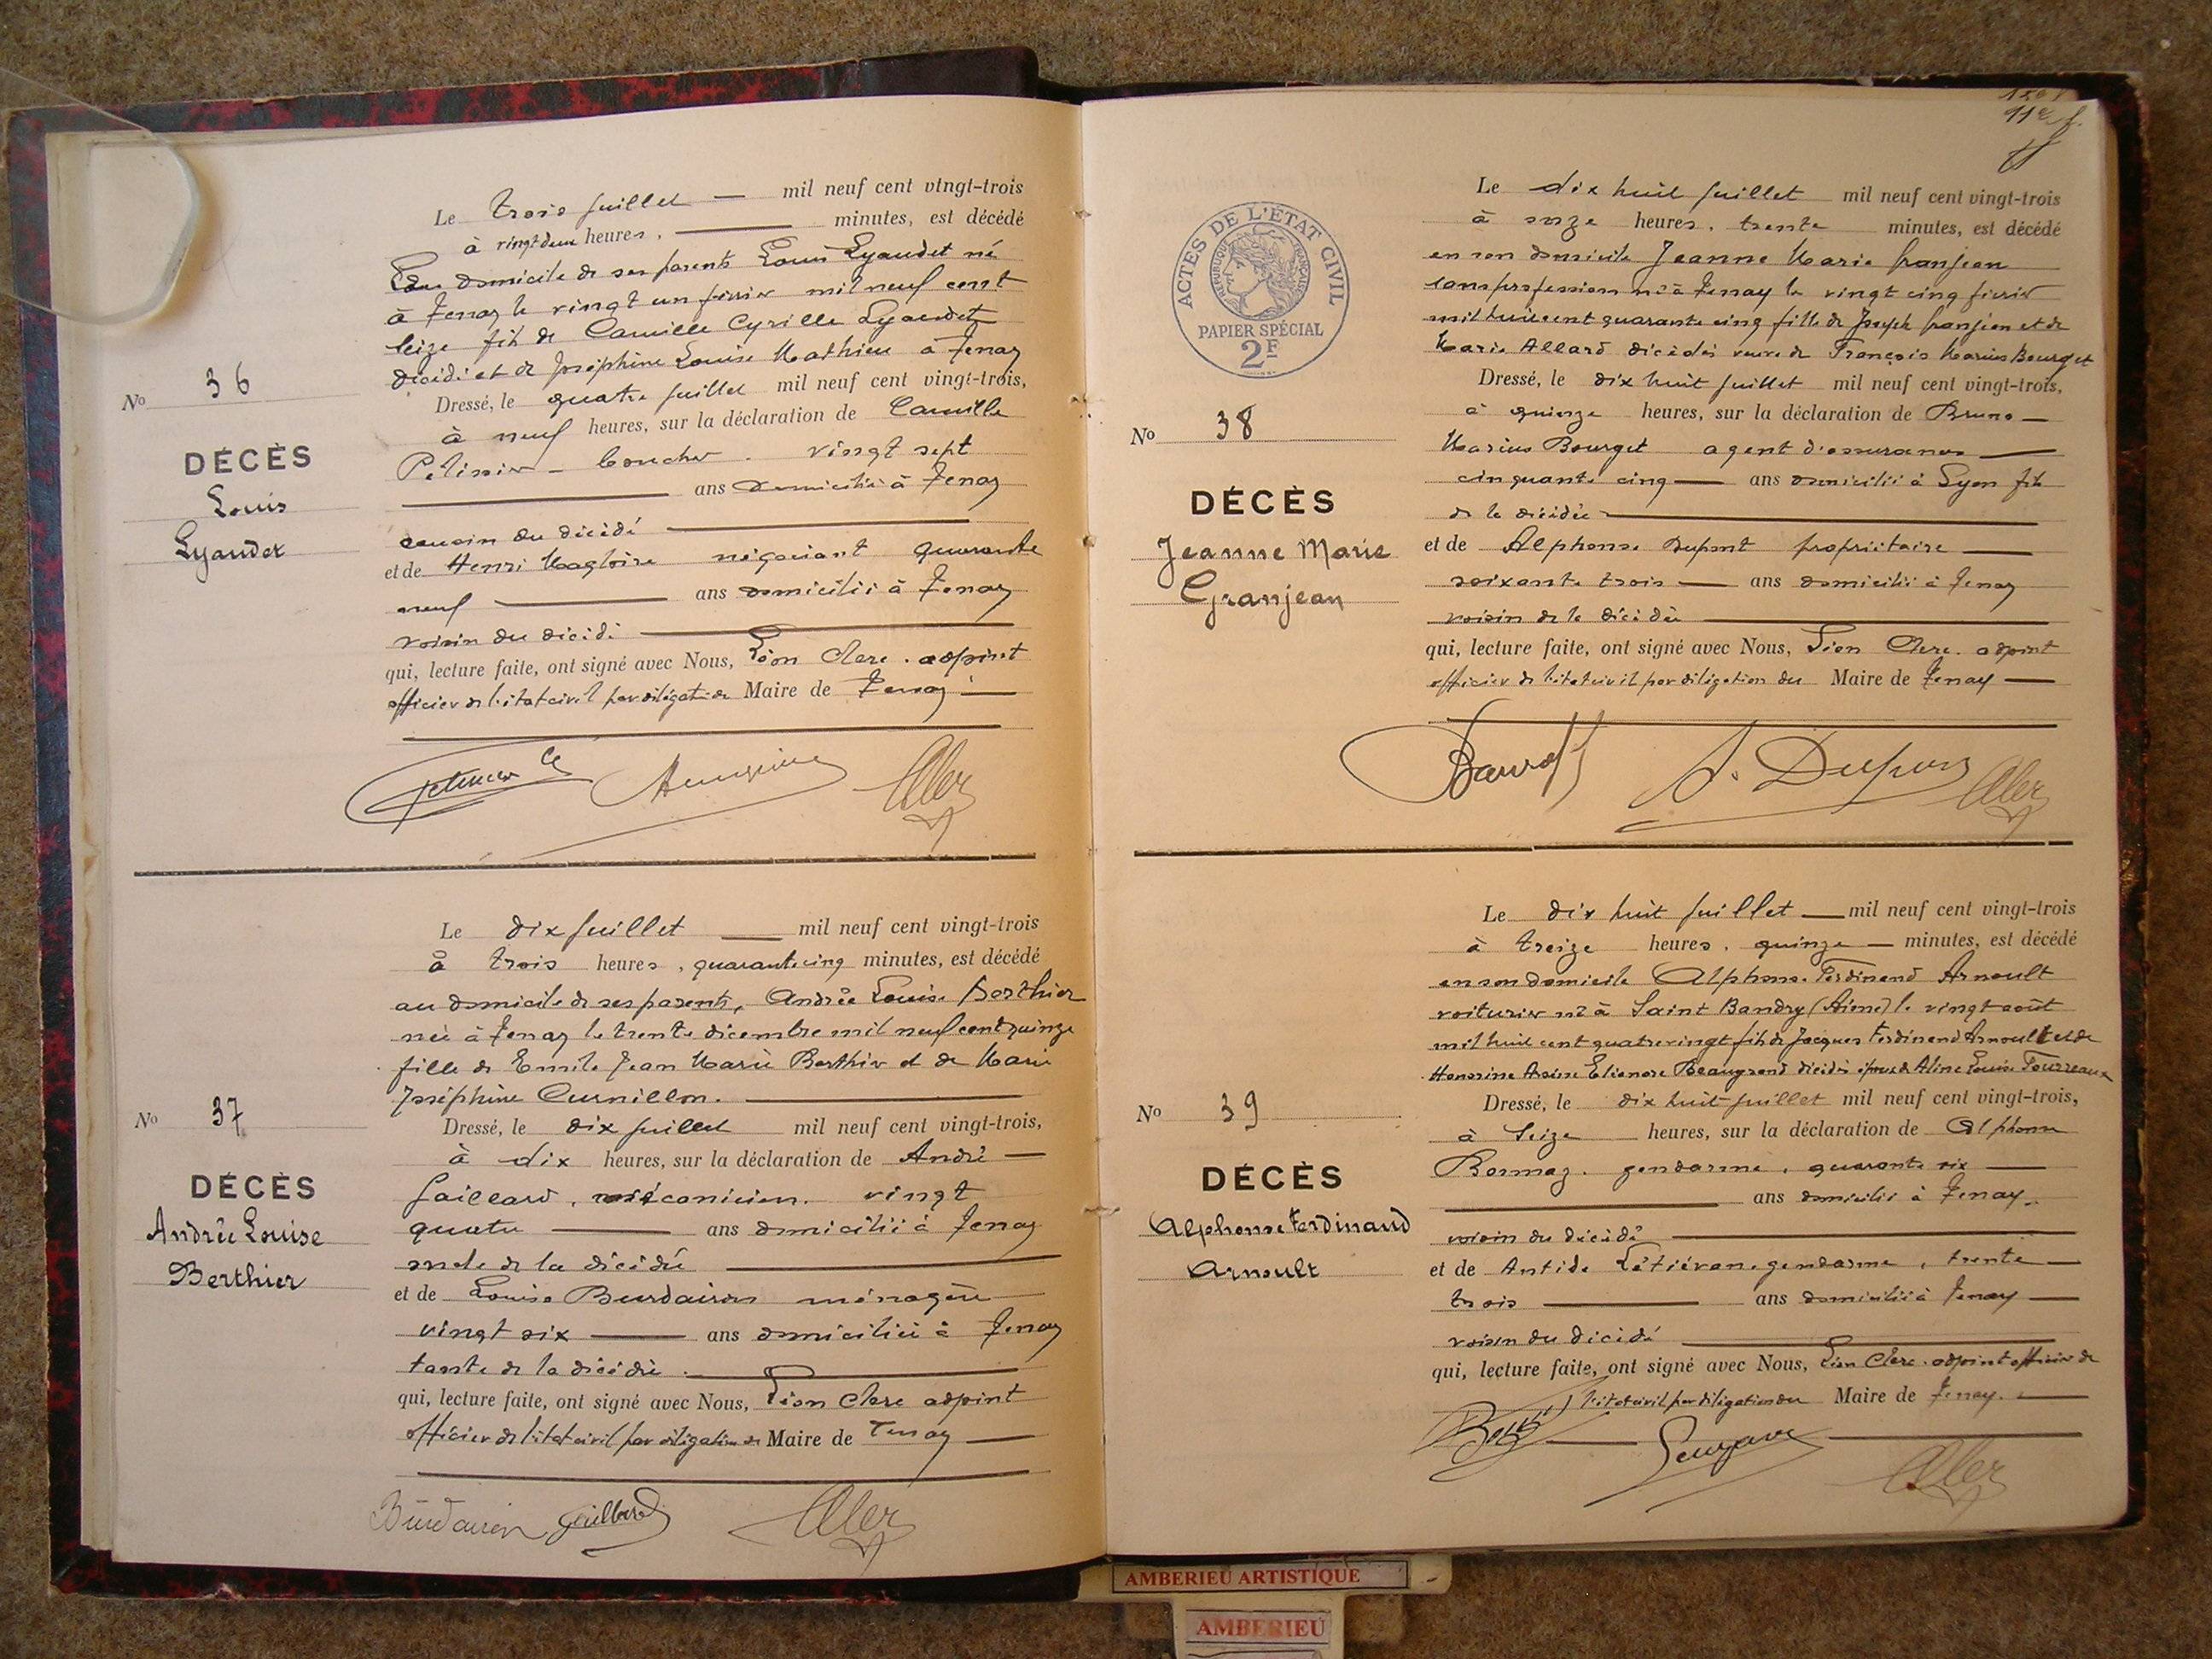 Le trois juillet — mil neuf cent vingt-trois
à vingt deux heures, — minutes, est décédé
au domicile de ses parents Louis Lyaudet né
à Tenay le vingt un février mil neuf cent
seize fils de Camille Cyrille Lyaudet
décédé et de Joséphine Louise Mathieu à Tenay
Dressé, le quatre juillet mil neuf cent vingt-trois,
à neuf heures, sur la déclaration de Camille
Pelissier — boucher . vingt sept
— ans domicilié à Tenay
cousin du décédé —
et de Henri Magloire négociant quarante
neuf — ans domicilié à Tenay
voisin du décédé —
qui, lecture faite, ont signé avec Nous, Léon Clerc . adjoint
officier de l'état civil par délégation du Maire de Tenay —
No 36
DÉCÈS
Louis
Lyaudet
Le dix juillet — mil neuf cent vingt-trois
à trois heures, quarante cinq minutes, est décédé
au domicile de ses parents, Andrée Louise Berthier
née à Tenay le trente décembre mil neuf cent quinze
fille de Emile Jean Marie Berthier et de Marie
Joséphine Curnillon. —
Dressé, le dix juillet mil neuf cent vingt-trois,
à dix heures, sur la déclaration de André —
Gaillard, mécanicien. vingt
quatre — ans domicilié à Tenay
oncle de la décédée —
et de Louise Burdairon ménagère
vingt six — ans domiciliée à Tenay
tante de la décédée. —
qui, lecture faite, ont signé avec Nous, Léon Clerc adjoint
officier de l'état civil par délégation du Maire de Tenay —
Burdairon Gaillard
No 37
DÉCÈS
Andrée Louise
Berthier
11e f.
ACTES DE L'ÉTAT CIVIL
RÉPUBLIQUE FRANÇAISE
PAPIER SPÉCIAL
2F
Le dix huit juillet mil neuf cent vingt-trois
à onze heures, trente minutes, est décédé
en son domicile Jeanne Marie Granjean
sans profession née à Tenay le vingt cinq février
mil huit cent quarante cinq fille de Joseph Granjean et de
Marie Allard décédés veuve de François Marius Bourget
Dressé, le dix huit juillet mil neuf cent vingt-trois,
à quinze heures, sur la déclaration de Bruno —
Marius Bourget agent d'assurances —
cinquante cinq — ans domicilié à Lyon fils
de la décédée —
et de Alphonse Dupont propriétaire —
soixante trois — ans domicilié à Tenay
voisin de la décédée —
qui, lecture faite, ont signé avec Nous, Léon Clerc. adjoint
officier de l'état civil par délégation du Maire de Tenay —
A. Dupont
No 38
DÉCÈS
Jeanne Marie
Granjean
Le dix huit juillet — mil neuf cent vingt-trois
à treize heures, quinze — minutes, est décédé
en son domicile Alphonse Ferdinand Arnoult
voiturier né à Saint Bandry (Aisne) le vingt août
mil huit cent quatre vingt fils de Jacques Ferdinand Arnoult et de
Honorine Eléonore Beaugrand décédés époux de Aline Louise Tourreaux
Dressé, le dix huit juillet mil neuf cent vingt-trois,
à seize heures, sur la déclaration de Alphonse
Bornaz. gendarme, quarante six —
— ans domicilié à Tenay.
voisin du décédé —
et de Antide Létiévan, gendarme, trente —
trois — ans domicilié à Tenay —
voisin du décédé —
qui, lecture faite, ont signé avec Nous, Léon Clerc. adjoint officier de
l'état civil par délégation du Maire de Tenay. —
No 39
DÉCÈS
Alphonse Ferdinand
Arnoult
AMBERIEU ARTISTIQUE
AMBERIEU